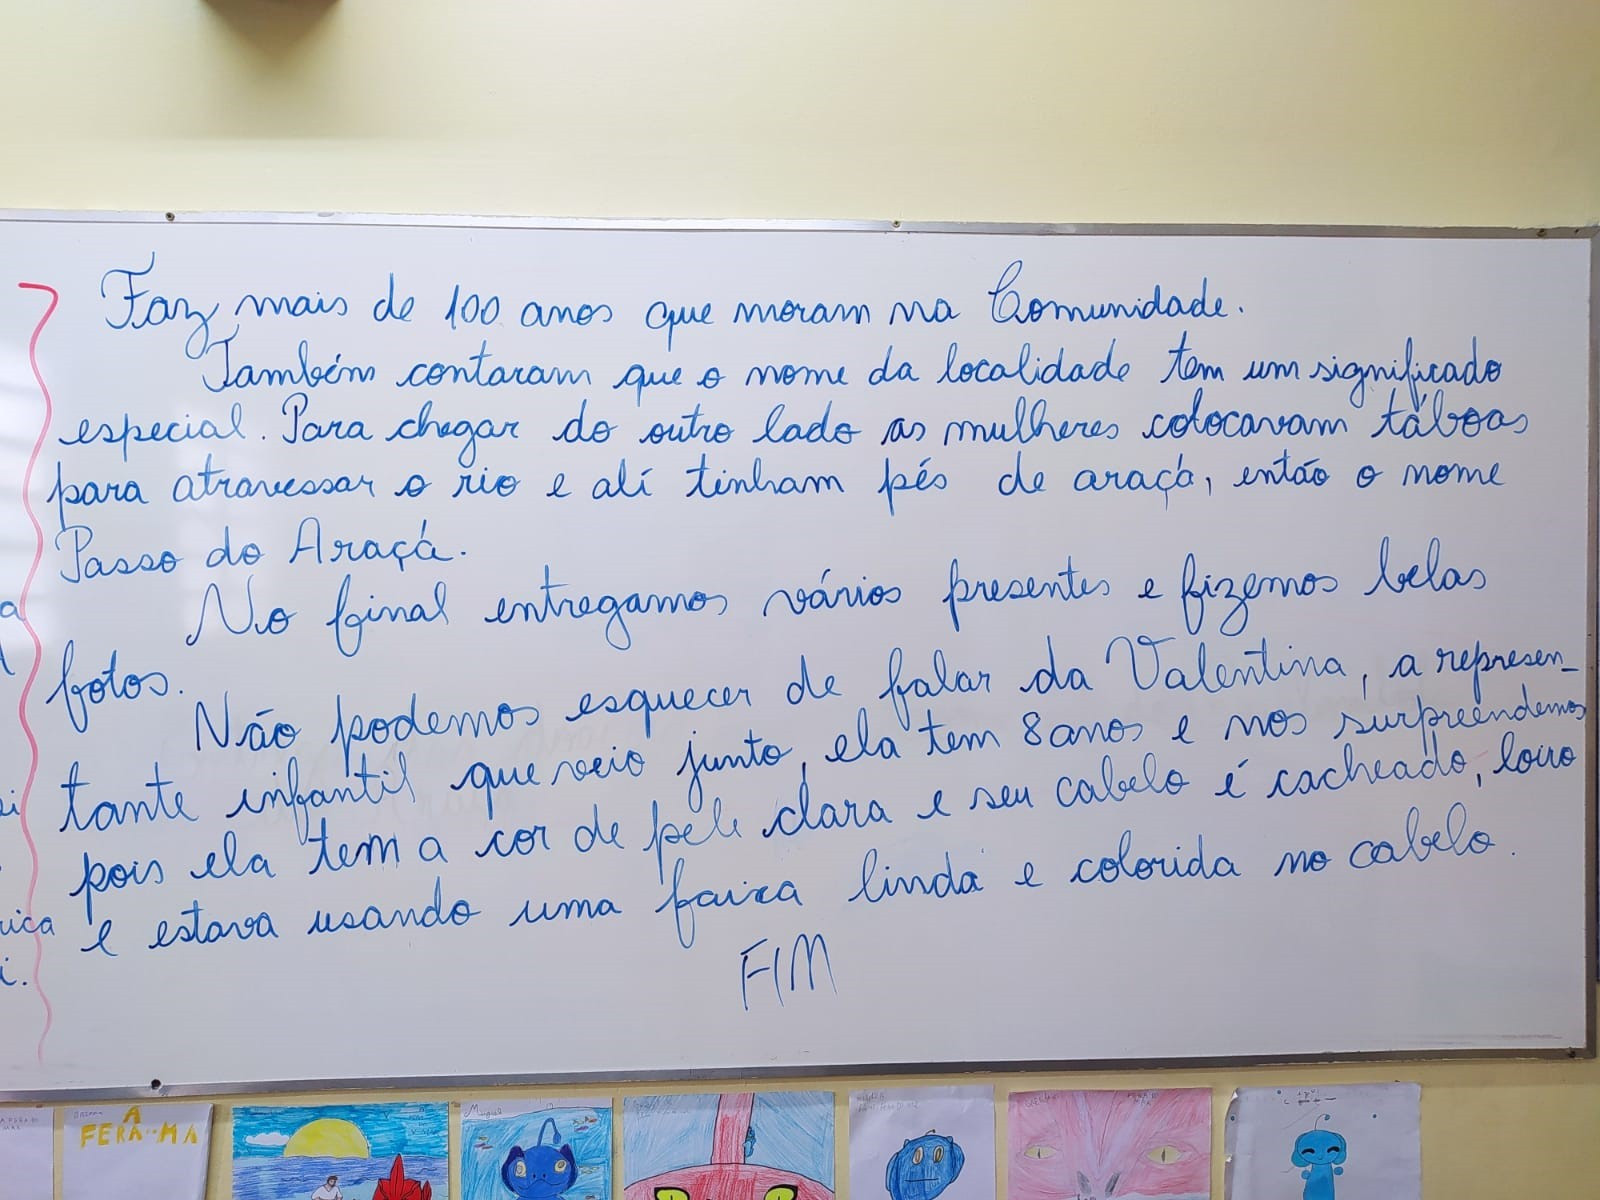 Faz mais de 100 anos que moram na Comunidade.
Também contaram que o nome da localidade tem um significado
especial. Para chegar do outro lado as mulheres colocavam táboas
para atravessar o rio e alí tinham pés de araçá, então o nome
Passo do Araçá.
No final entregamos vários presentes e fizemos belas
fotos.
Não podemos esquecer de falar da Valentina, a represen-
tante infantil que veio junto, ela tem 8 anos e nos surpreendemos
pois ela tem a cor de pele clara e seu cabelo é cacheado, loiro
e estava usando uma faixa linda e colorida no cabelo.
FIM
A
FERA
MA
Miguel